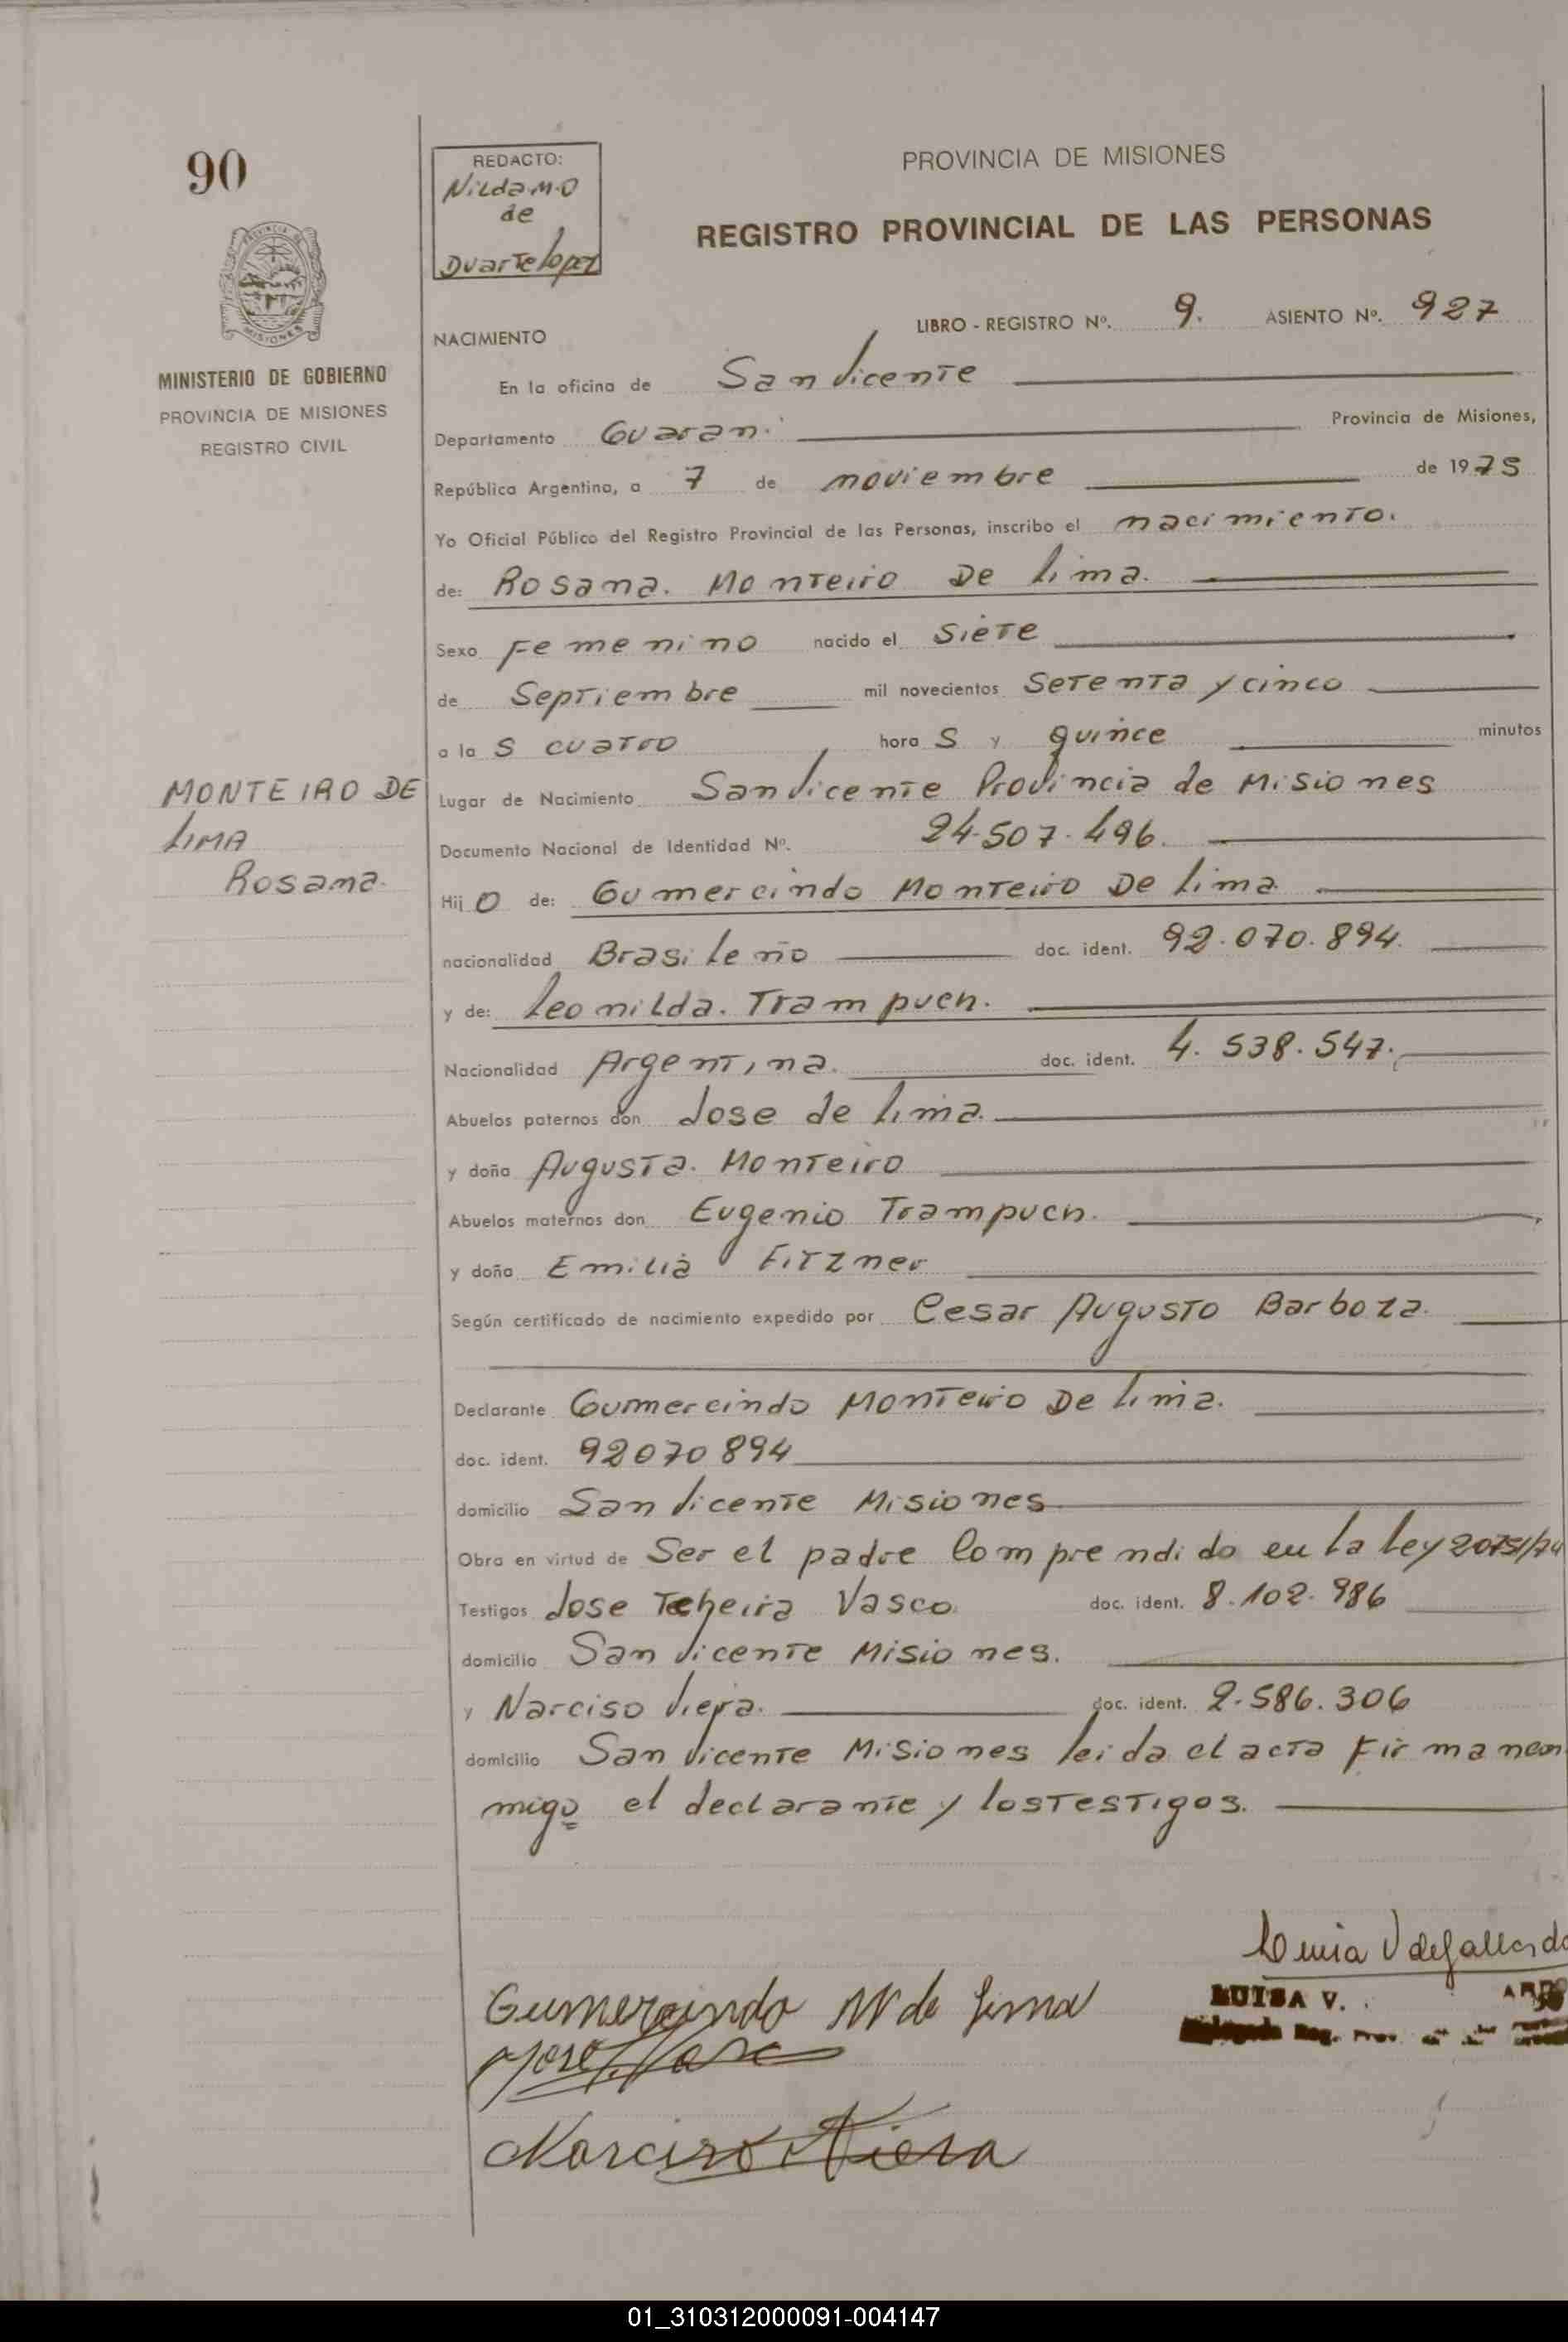 90
REDACTO:
Nilda M.O
de
Duarte Lopez
PROVINCIA DE MISIONES
REGISTRO PROVINCIAL DE LAS PERSONAS
PROVINCIA DE
MISIONES
MINISTERIO DE GOBIERNO
PROVINCIA DE MISIONES
REGISTRO CIVIL
LIBRO - REGISTRO Nº. 9. ASIENTO Nº. 927
NACIMIENTO
En la oficina de San Vicente
Departamento Guarani Provincia de Misiones,
República Argentina, a 7 de noviembre de 1975
Yo Oficial Público del Registro Provincial de las Personas, inscribo el nacimiento.
de: Rosana. Monteiro De Lima.
Sexo Femenino nacido el Siete
de Septiembre mil novecientos Setenta y cinco
a la s cuatro hora s y quince minutos
MONTEIRO DE
LIMA
Rosana.
Lugar de Nacimiento San Vicente Provincia de Misiones
Documento Nacional de Identidad Nº. 24.507.496.
Hij o de: Gumercindo Monteiro De Lima
nacionalidad Brasileño doc. ident. 92.070.894.
y de: Leonilda. Trampuch.
Nacionalidad Argentina. doc. ident. 4.538.547.
Abuelos paternos don Jose de Lima.
y doña Augusta. Monteiro
Abuelos maternos don Eugenio Trampuch.
y doña Emilia Fitzner
Según certificado de nacimiento expedido por Cesar Augusto Barboza.
Declarante Gumercindo Monteiro De Lima.
doc. ident. 92070894
domicilio San Vicente Misiones
Obra en virtud de Ser el padre Comprendido en la Ley
Testigos Jose Vasco doc. ident. 8.102.986
domicilio San Vicente Misiones.
y Narciso doc. ident. 2.586.306
domicilio San Vicente Misiones leida el acta Firman con
migo el declarante y los testigos.
V de Gallardo
LUISA V.
Gumercindo M de Lima
Jose
Narciso Viera
01_310312000091-004147